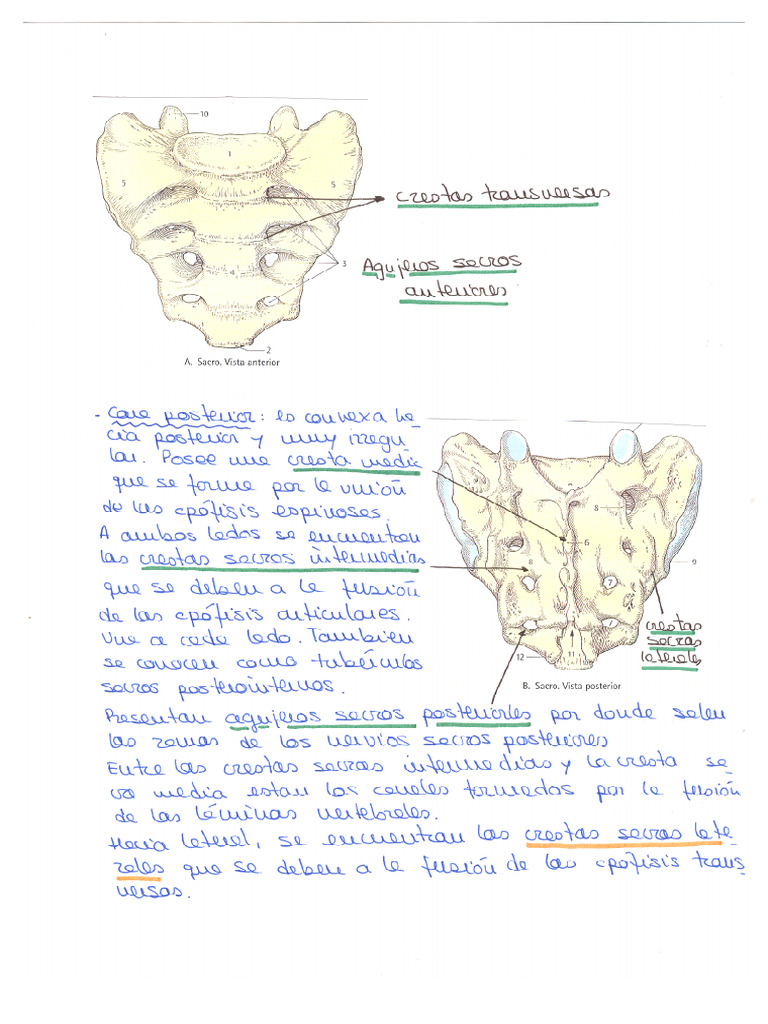 10
1
5
5
crestas transversas
3
4
Agujeros sacros
anteriores
2
A. Sacro. Vista anterior
- Cara posterior: es convexa ha-
cia posterior y muy irregu-
lar. Posee una cresta media
que se forma por la unión
de las apófisis espinosas.
A ambos lados se encuentran
las crestas sacras intermedias
que se deben a la fusión
de las apófisis articulares.
Una a cada lado. También
se conocen como tubérculos
sacros posterointernos.
8
6
9
7
crestas
sacras
laterales
12
11
B. Sacro. Vista posterior
Presentan agujeros sacros posteriores por donde salen
las ramas de los nervios sacros posteriores
Entre las crestas sacras intermedias y la cresta sa-
cra media estan los canales formados por la fusión
de las láminas vertebrales.
Hacia lateral, se encuentran las crestas sacras late-
rales que se deben a la fusión de las apófisis trans-
versas.